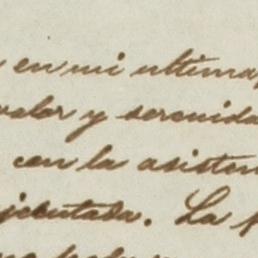 en mi ultima,
valor y serenida
con la asisten
ejecutada. La